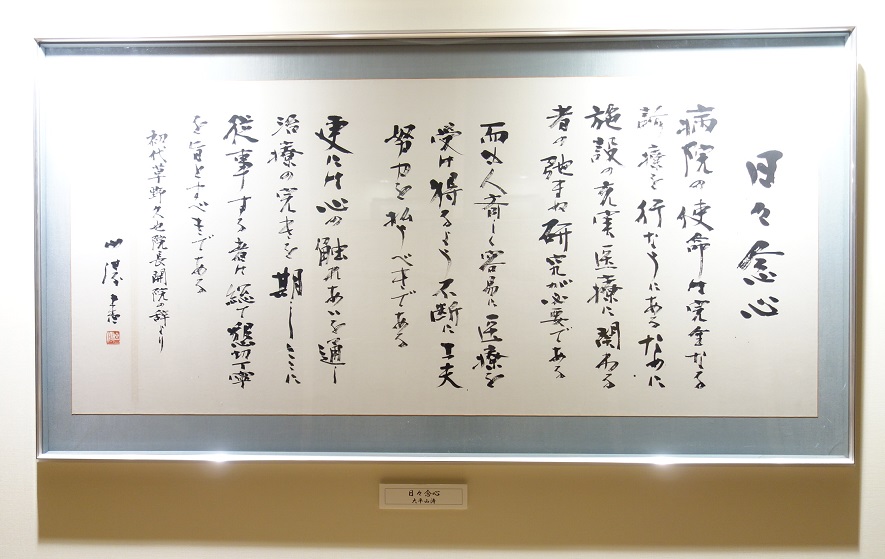 日々念心
病院の使命は完全なる
診療を行なうにあるために
施設の充実医療に関わる
者の弛まぬ研究が必要である
而も人斉しく容易に医療を
受け得るよう不断に工夫
努力を払うべきである
更には心の触れあいを通し
治療の完きを期しここに
従事する者は総て懇切丁寧
を旨とすべきである
初代草野久也院長開院の辞より
山濤
日々念心
大平山濤